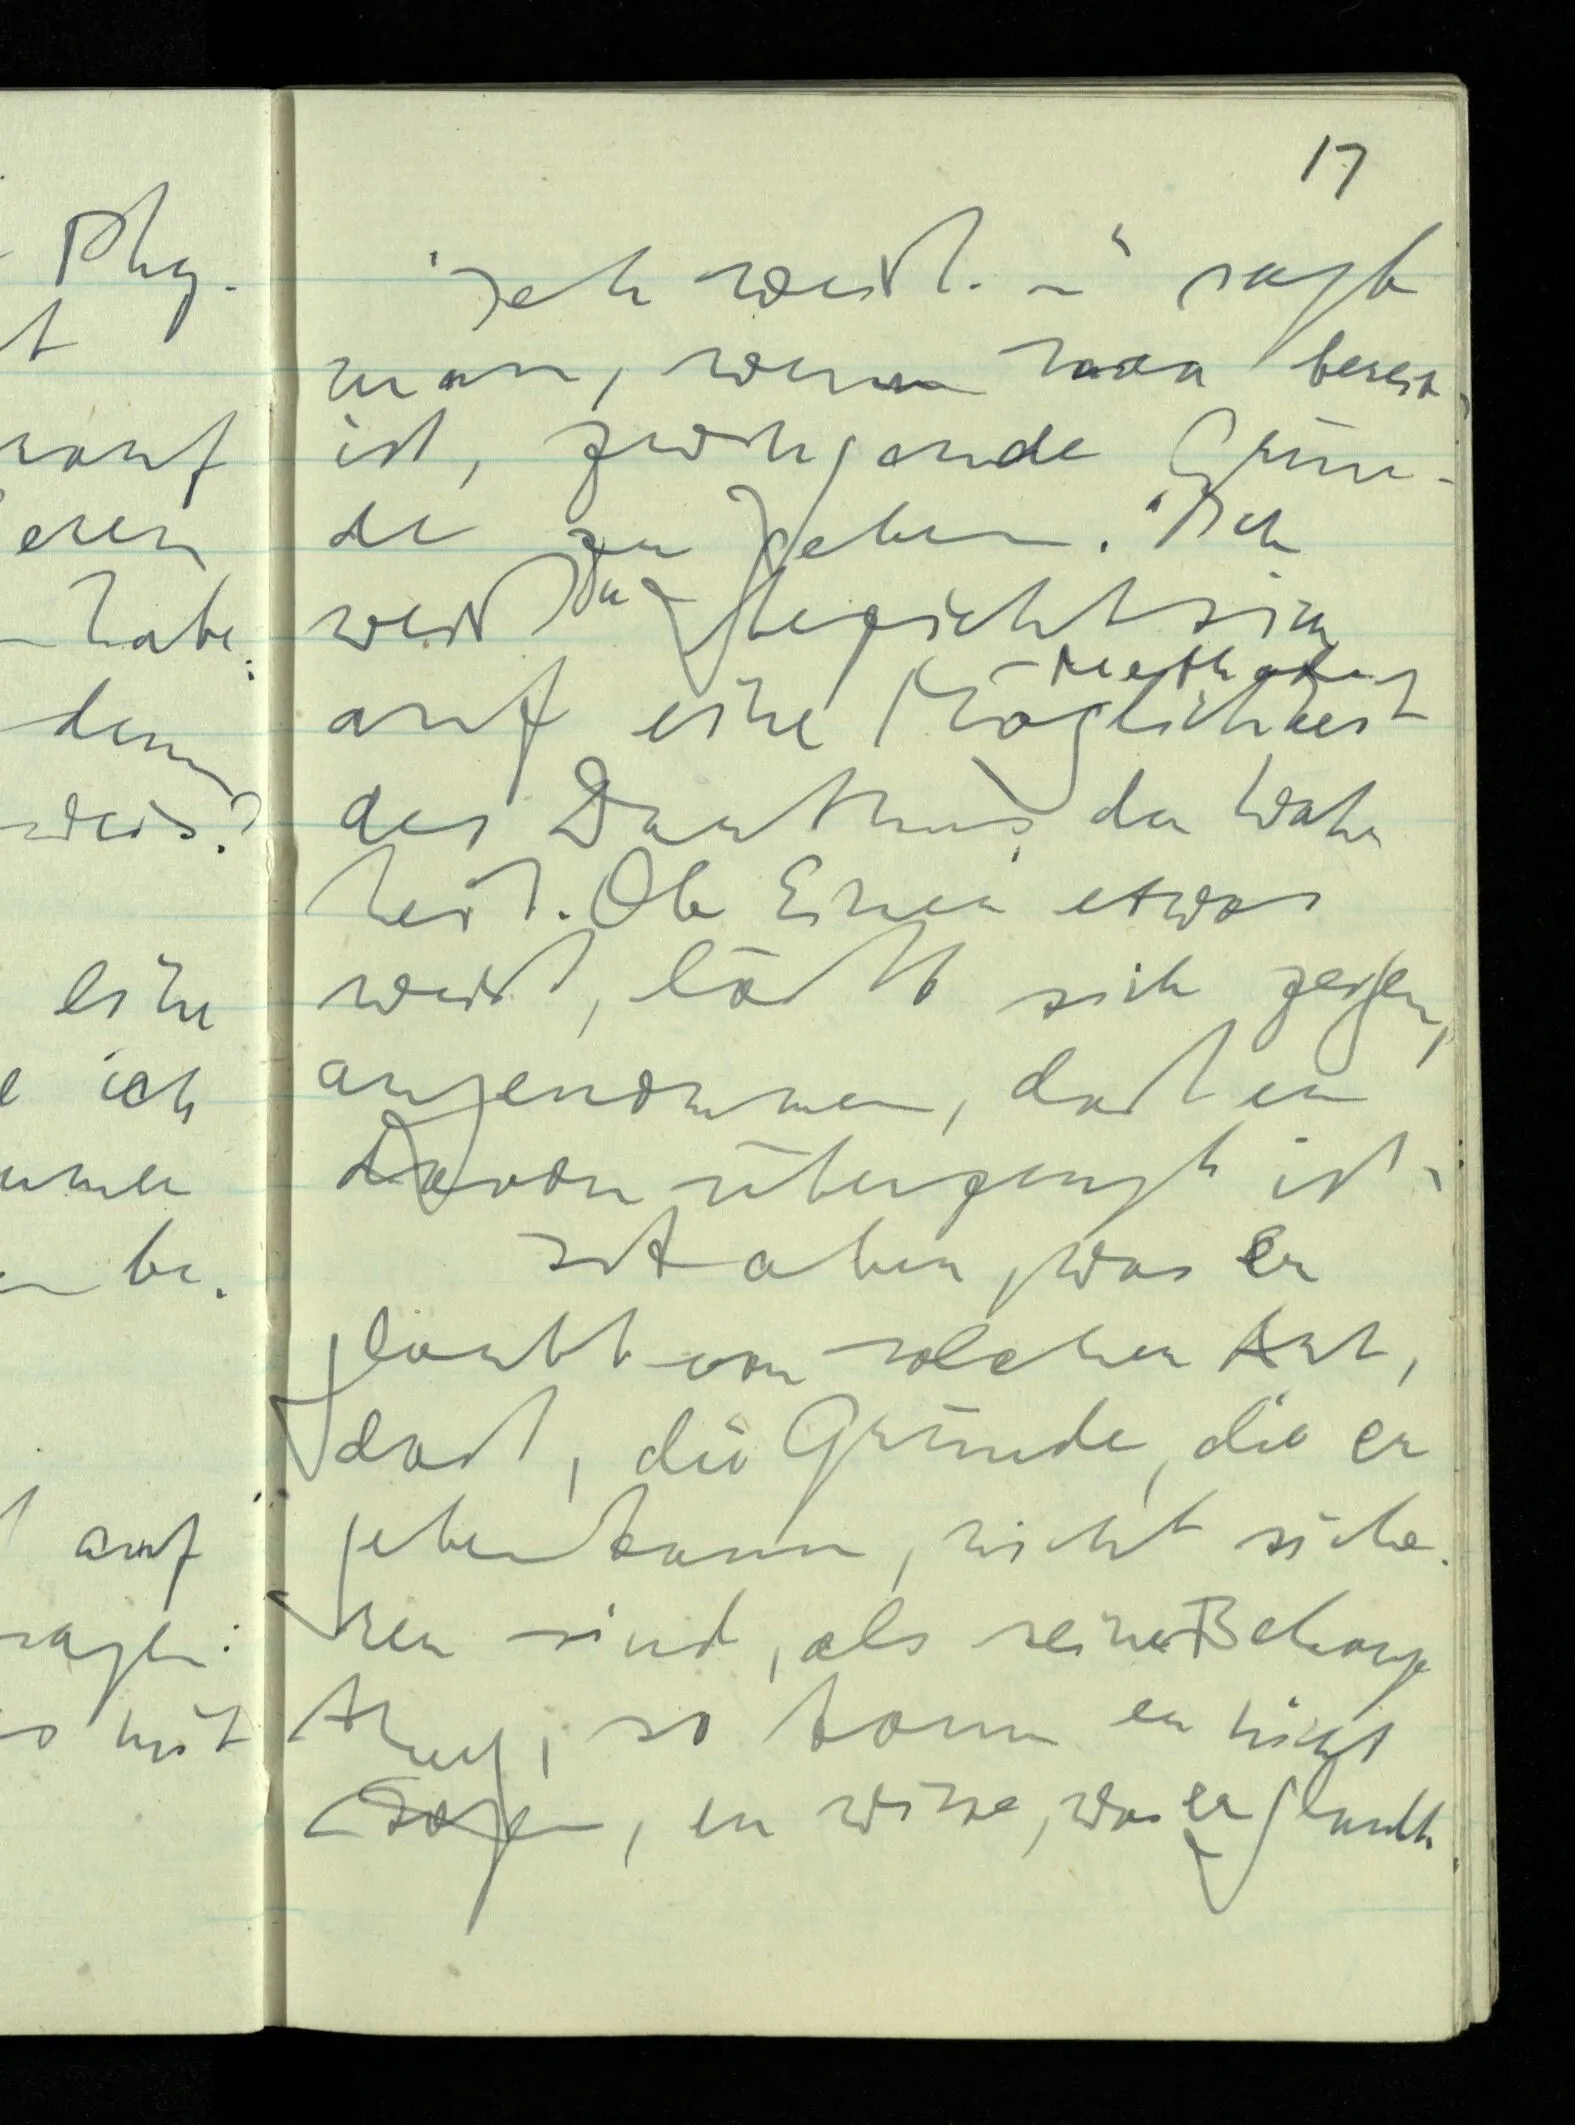 Phy-
t
rauf
eren
habe:
denn
weis?
eine
ich
mmer
be.
auf
sagen:
mit
17
"Ich weiß. –" sagt
man, wenn man bereit
ist, zwingende Grün-
de zu geben. "Ich
weiß" bezieht sich
Methode
auf eine Möglichkeit
des Dartuns der Wahr
heit. Ob Einer etwas
weiß, läßt sich zeigen,
angenommen, daß er
davon überzeugt ist.
Ist aber, was er
glaubt von solcher Art,
daß, die Gründe, die er
geben kann, nicht siche-
rer sind, als seine Behaup
tung, so kann er nicht
sagen, er wisse, was er glaubt